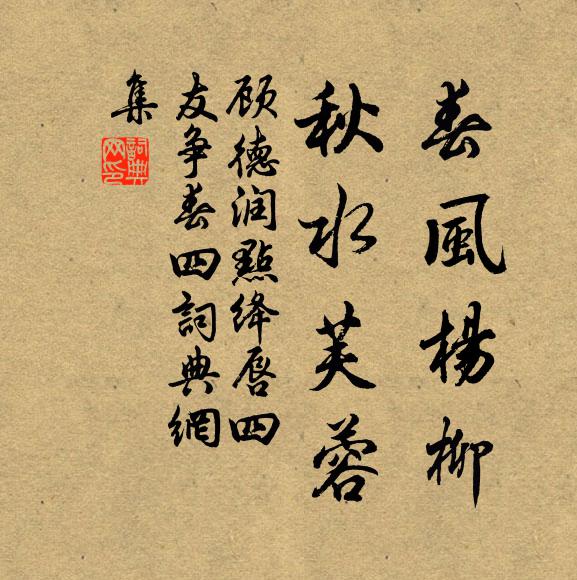 春風楊柳
秋水芙蓉
顾德润點绛唇四
友争春四詞典網
集
詞典
网印